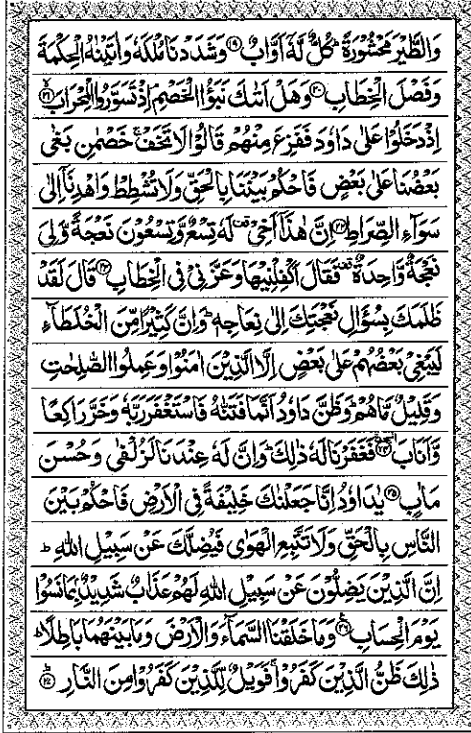 وَالطَّيْرَ مَحْشُوْرَةً ؕ كُلٌّ لَّهٗۤ اَوَّابٌ ۝۱۹ وَشَدَدْنَا مُلْكَهٗ وَاٰتَيْنٰهُ الْحِكْمَةَ
وَفَصْلَ الْخِطَابِ ۝۲۰ وَهَلْ اَتٰىكَ نَبَؤُا الْخَصْمِ ۘ اِذْ تَسَوَّرُوا الْمِحْرَابَ ۝۲۱
اِذْ دَخَلُوْا عَلٰى دَاوٗدَ فَفَزِعَ مِنْهُمْ قَالُوْا لَا تَخَفْ ۚ خَصْمٰنِ بَغٰى
بَعْضُنَا عَلٰى بَعْضٍ فَاحْكُمْ بَيْنَنَا بِالْحَقِّ وَلَا تُشْطِطْ وَاهْدِنَاۤ اِلٰى
سَوَآءِ الصِّرَاطِ ۝۲۲ اِنَّ هٰذَاۤ اَخِىْ ۫ لَهٗ تِسْعٌ وَّتِسْعُوْنَ نَعْجَةً وَّلِىَ
نَعْجَةٌ وَّاحِدَةٌ ۫ فَقَالَ اَكْفِلْنِيْهَا وَعَزَّنِىْ فِى الْخِطَابِ ۝۲۳ قَالَ لَقَدْ
ظَلَمَكَ بِسُؤَالِ نَعْجَتِكَ اِلٰى نِعَاجِهٖ ؕ وَاِنَّ كَثِيْرًا مِّنَ الْخُلَطَآءِ
لَيَبْغِىْ بَعْضُهُمْ عَلٰى بَعْضٍ اِلَّا الَّذِيْنَ اٰمَنُوْا وَعَمِلُوا الصّٰلِحٰتِ
وَقَلِيْلٌ مَّا هُمْ ؕ وَظَنَّ دَاوٗدُ اَنَّمَا فَتَنّٰهُ فَاسْتَغْفَرَ رَبَّهٗ وَخَرَّ رَاكِعًا
وَّاَنَابَ ۝۲۴ فَغَفَرْنَا لَهٗ ذٰلِكَ ؕ وَاِنَّ لَهٗ عِنْدَنَا لَزُلْفٰى وَحُسْنَ
مَاٰبٍ ۝۲۵ يٰدَاوٗدُ اِنَّا جَعَلْنٰكَ خَلِيْفَةً فِى الْاَرْضِ فَاحْكُمْ بَيْنَ
النَّاسِ بِالْحَقِّ وَلَا تَتَّبِعِ الْهَوٰى فَيُضِلَّكَ عَنْ سَبِيْلِ اللّٰهِ ؕ
اِنَّ الَّذِيْنَ يَضِلُّوْنَ عَنْ سَبِيْلِ اللّٰهِ لَهُمْ عَذَابٌ شَدِيْدٌۢ بِمَا نَسُوْا
يَوْمَ الْحِسَابِ ۝۲۶ وَمَا خَلَقْنَا السَّمَآءَ وَالْاَرْضَ وَمَا بَيْنَهُمَا بَاطِلًا ؕ
ذٰلِكَ ظَنُّ الَّذِيْنَ كَفَرُوْا ۚ فَوَيْلٌ لِّلَّذِيْنَ كَفَرُوْا مِنَ النَّارِ ۝۲۷